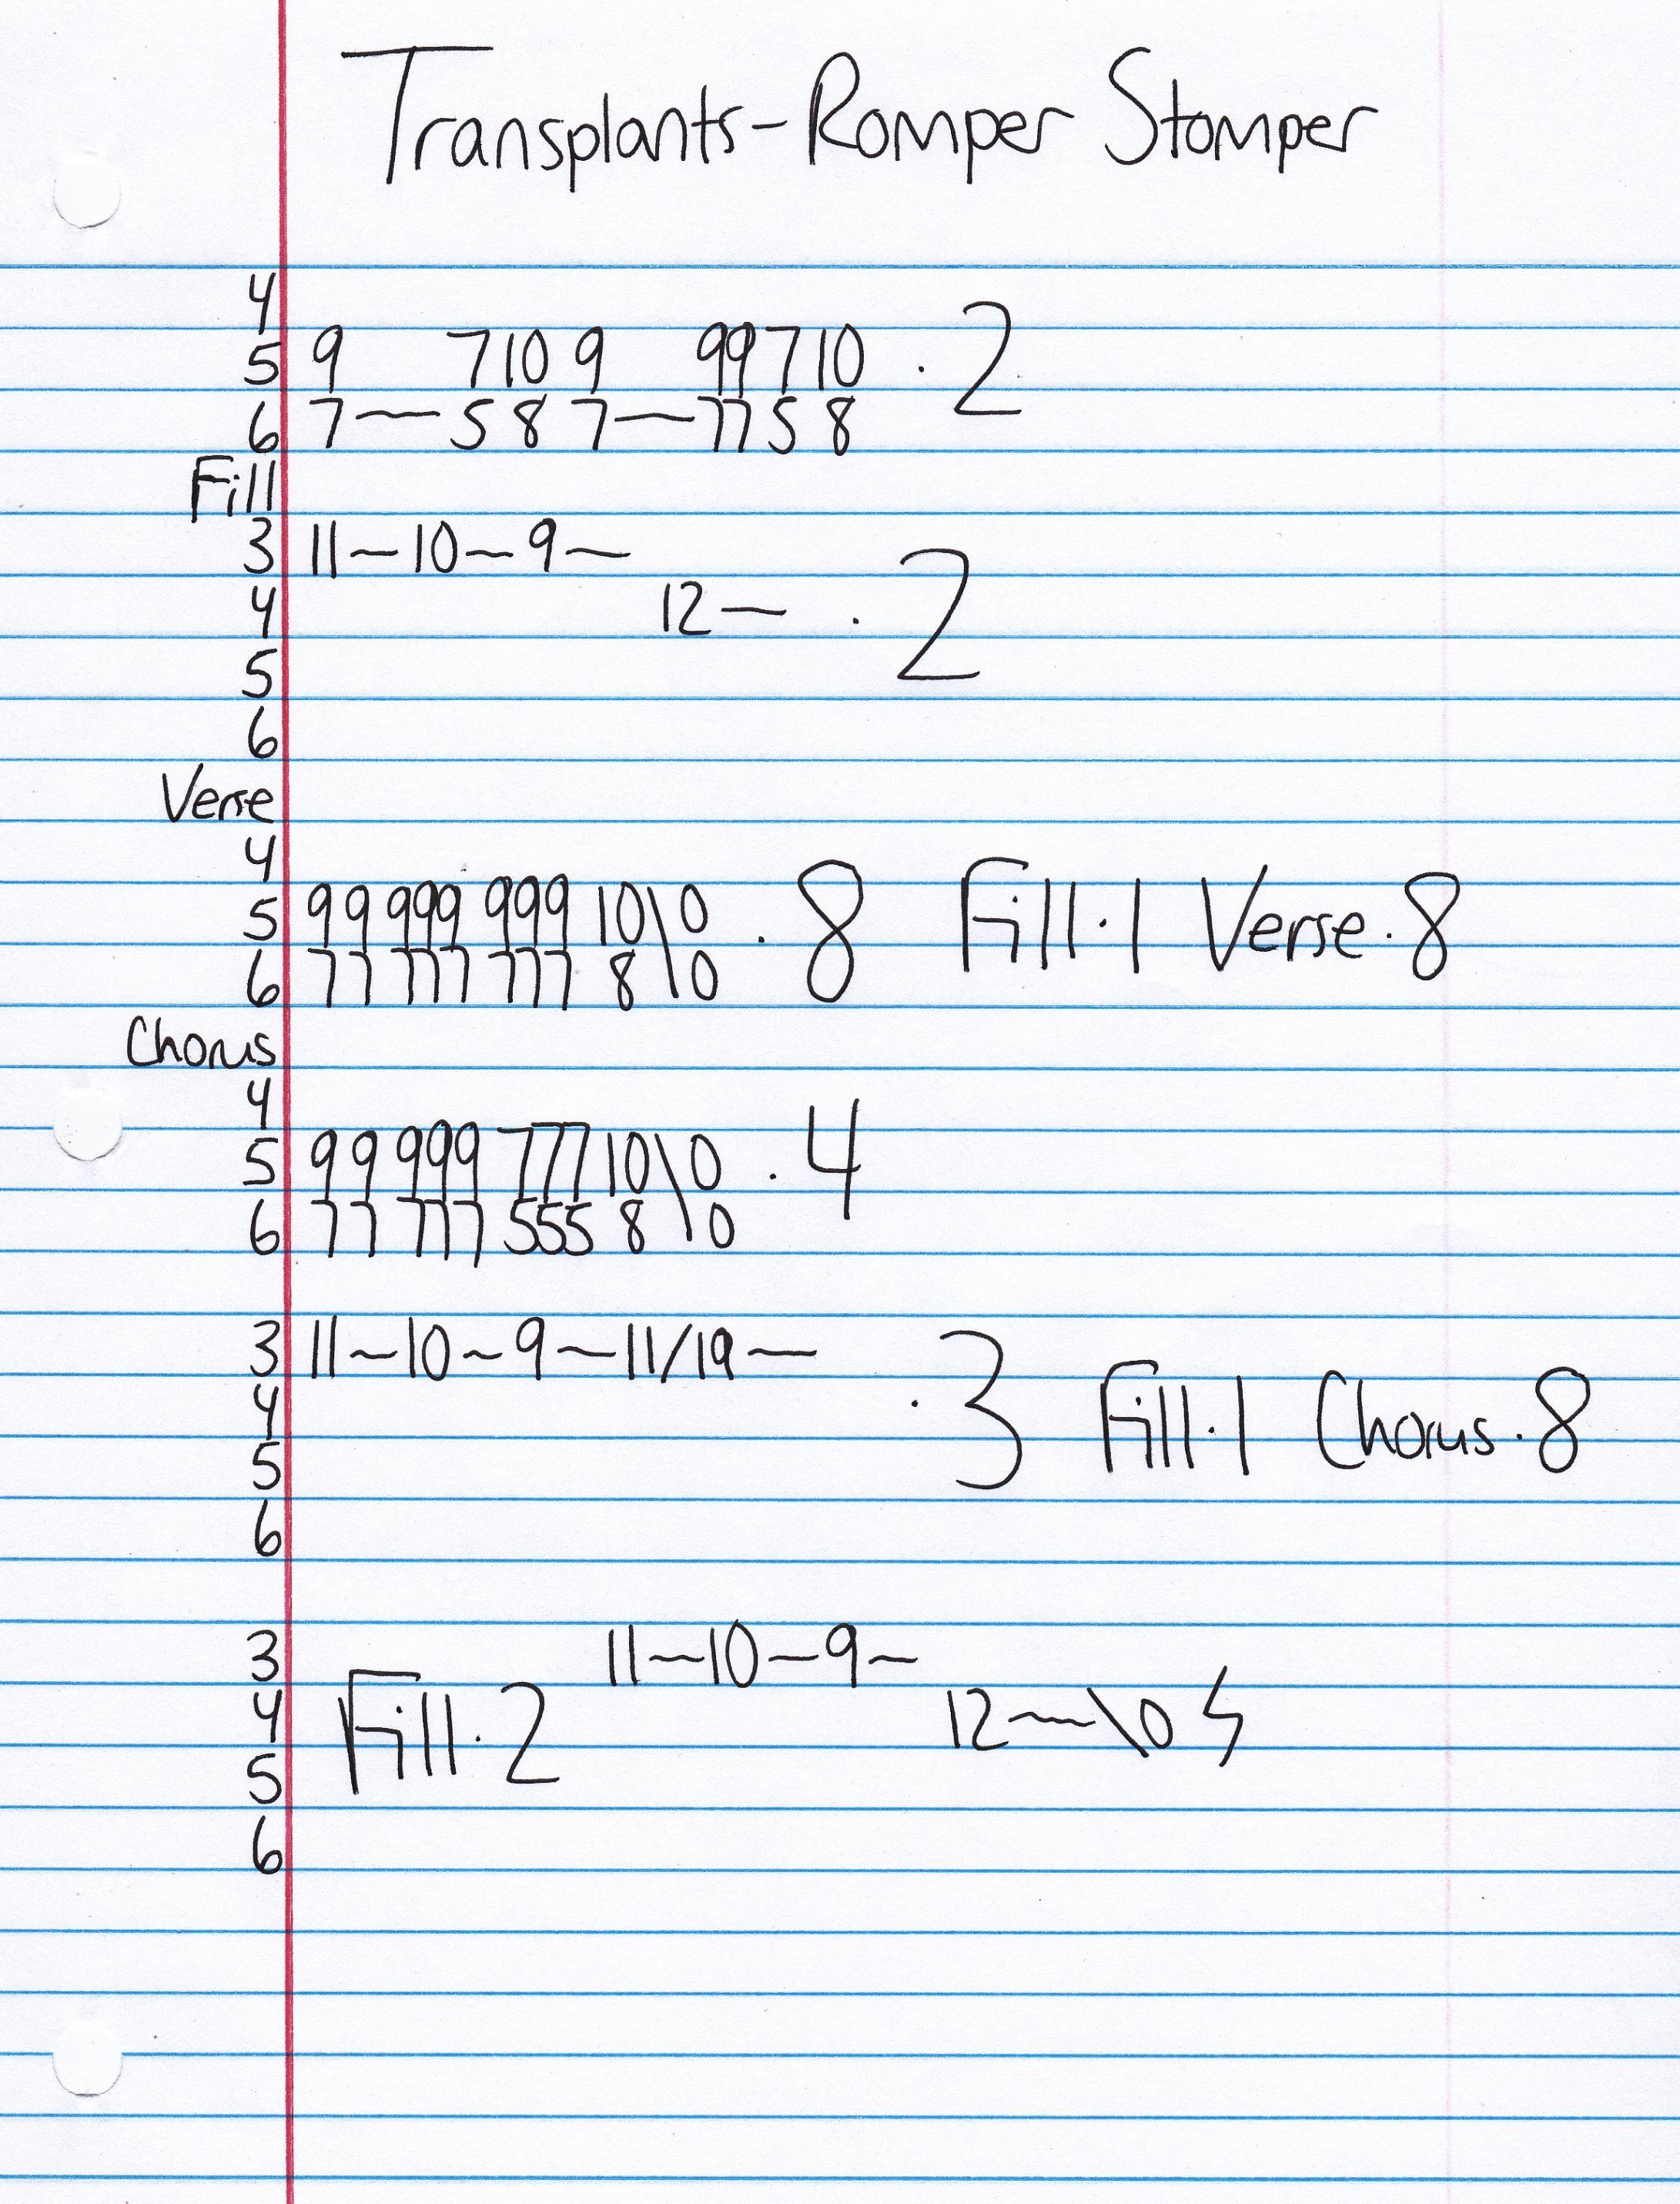 Transplants-Romper Stomper
4
5 9 7 10 9 99 7 10 . 2
6 7— 5 8 7— 77 5 8
Fill
3 11~10~9~
4 12— . 2
5
6
Verse
4
5 99 999 999 10\0 . 8 Fill.1 Verse.8
6 77 777 777 8\0
Chorus
4
5 99 999 777 10\0 . 4
6 77 777 555 8\0
3 11~10~9~11/19—
4 . 3 Fill.1 Chorus.8
5
6
3 11~10~9~
4 Fill.2 12~\0
5
6